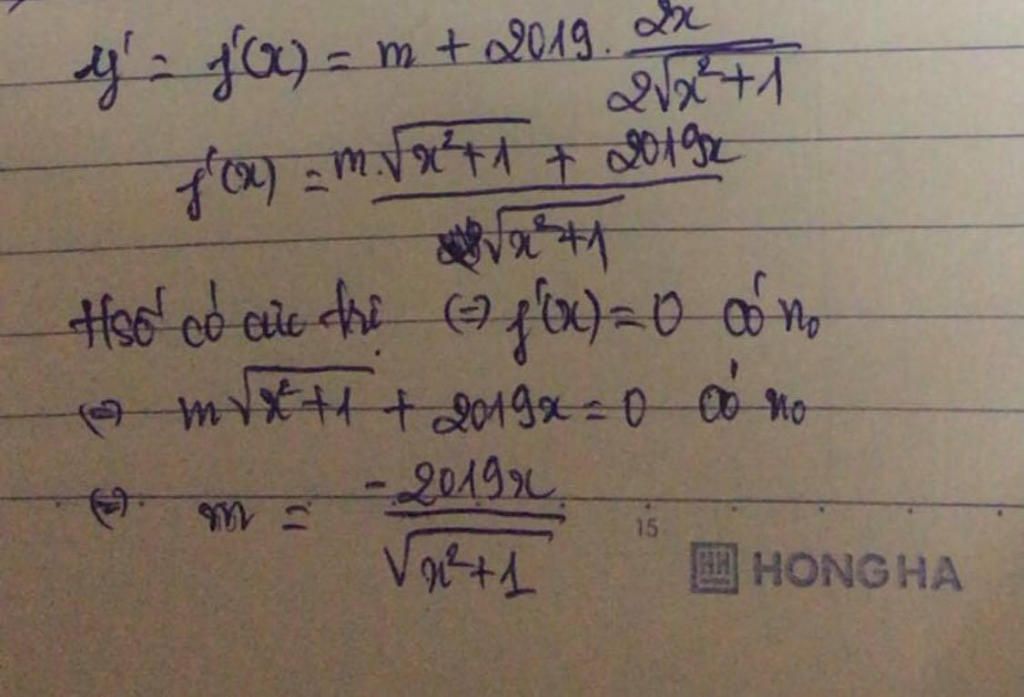 y' = f'(x) = m + 2019. 2x / 2√x²+1
f'(x) = m.√x²+1 + 2019x / √x²+1
Hsố có cực trị (=) f'(x) = 0 có n₀
(=) m√x²+1 + 2019x = 0 có n₀
(=) m = -2019x / √x²+1
15
HH HONG HA